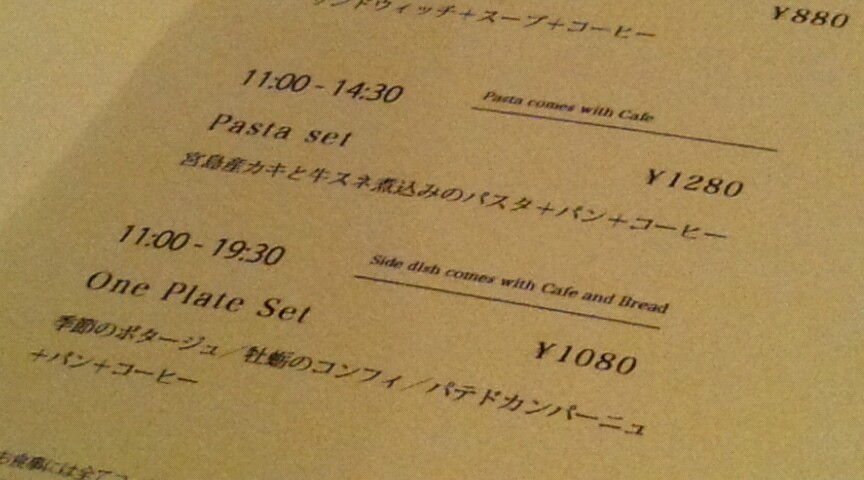 ンドウィッチ＋スープ＋コーヒー
¥880
11:00 - 14:30
Pasta comes with Cafe
Pasta set
¥1280
宮島産カキと牛スネ煮込みのパスタ＋パン＋コーヒー
11:00 - 19:30
Side dish comes with Cafe and Bread
One Plate Set
¥1080
季節のポタージュ／牡蛎のコンフィ／パテドカンパーニュ
＋パン＋コーヒー
お食事には全てコ